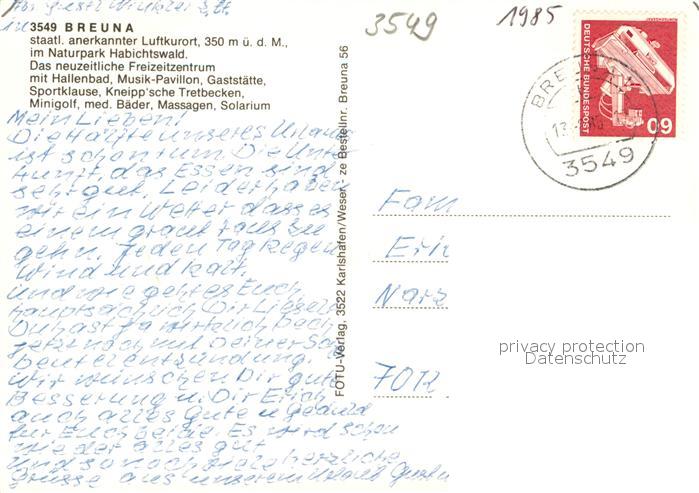 3549
1985
3549 BREUNA
staatl. anerkannter Luftkurort, 350 m ü. d. M.,
im Naturpark Habichtswald.
Das neuzeitliche Freizeitzentrum
mit Hallenbad, Musik-Pavillon, Gaststätte,
Sportklause, Kneipp'sche Tretbecken,
Minigolf, med. Bäder, Massagen, Solarium
Mein Lieben!
Die Hälfte unseres Urlaubs
ist schon rum. Die Unter
kunft, das Essen sind
sehr gut. Leider haben
wir ein Wetter dass es
einem graut raus zu
gehn. Jeden Tag Regen
Wind und kalt.
Und wie geht es Euch
hauptsächlich Dir Liesel
Du hast ja wirklich Pech
jetzt noch mit Deiner
beutelentzündung.
Wir wünschen Dir gute
Besserung u. Dir Erich
auch alles Gute u Geduld
für Euch beide. Es wird schon
wieder alles gut
Und so noch viele herzliche
Grüsse aus unserem Urlaub
FOTU-Verlag, 3522 Karlshafen/Weser - ze Bestellnr. Breuna 56
DEUTSCHE BUNDESPOST
60
BREUNA
3549
Fam
Eri
7012
privacy protection
Datenschutz